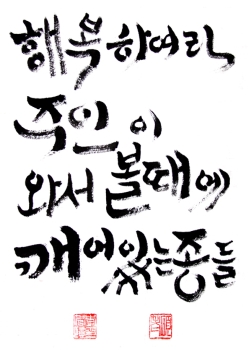 행복하여라
주인이
와서 볼때에
깨어있는종들